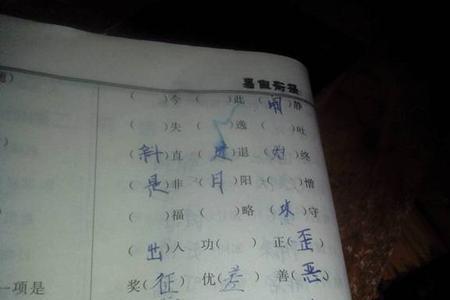 ( )今 ( )此 (闹)静
( )失 ( )逸 ( )吐
(斜)直 (进)退 ( )终
(是)非 (月)阳 ( )憎
( )福 ( )略 ( )守
(出)入 功( ) 正(歪)
一项是 奖(征) 优(差) 善(恶)